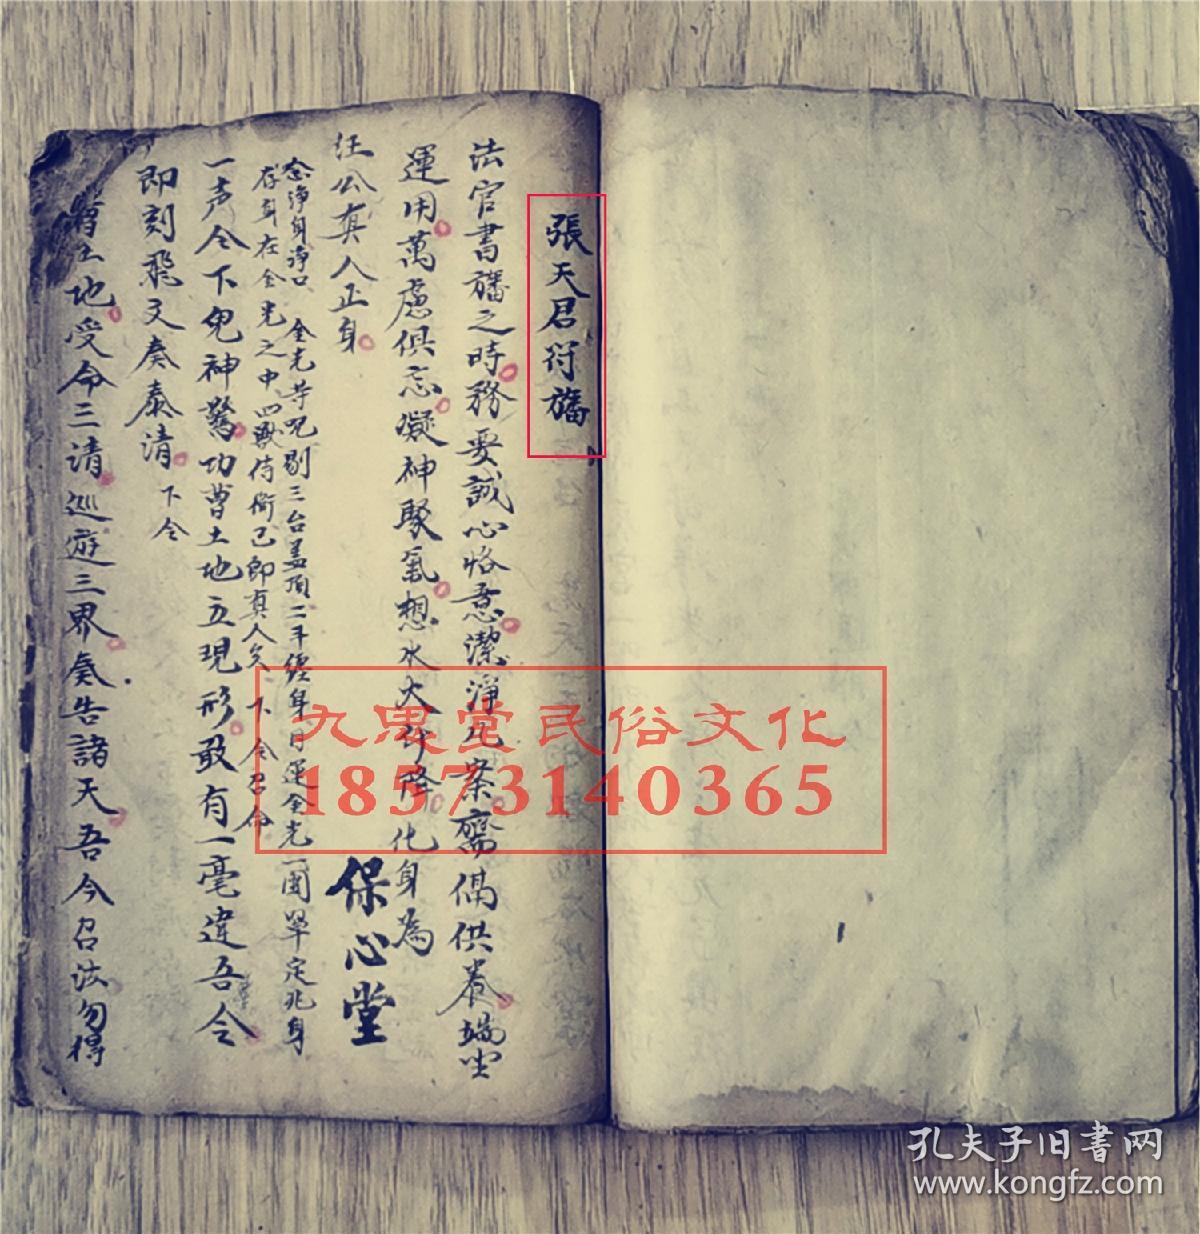 張天君符旛
法官書旛之時務要誠心恪意潔淨几案齋偈供養端坐
運用萬慮俱忘凝神聚氣想水火升降化身為
汪公真人正身
保心堂
念淨身淨口 金光等咒剔三台蓋頂二斗纏身目運金光一団罩定兆身
存身在金光之中四獸侍衛己即真人矣 下令召命
一声令下鬼神驚功曹土地立現形敢有一毫違吾令
即刻飛文奏泰清 下令
曹土地受命三請巡遊三界奏告諸天吾今召法勿得
九思堂民俗文化
18573140365
孔夫子旧書网
www.kongfz.com